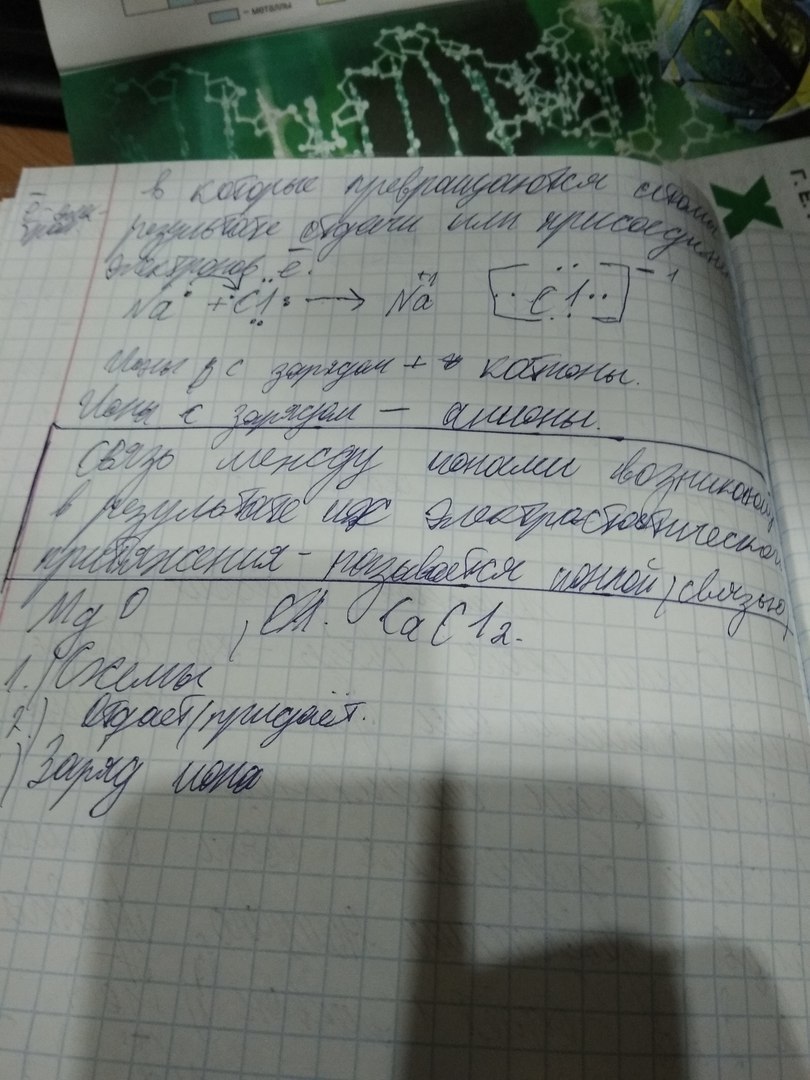 - металлы
Г. Е.
в которые превращаются атомы
результате отдачи или присоедине
электронов ē.
Na· + ·Cl: → Na⁺¹ [:Cl:]⁻¹
Ионы с зарядом + катионы.
Ионы с зарядом — анионы.
Связь между ионами возникающ
в результате их электростатическо
притяжения - называется ионной связью
MgO , CaCl₂.
1.) Схемы
2) Отдаёт/придаёт.
) Заряд иона